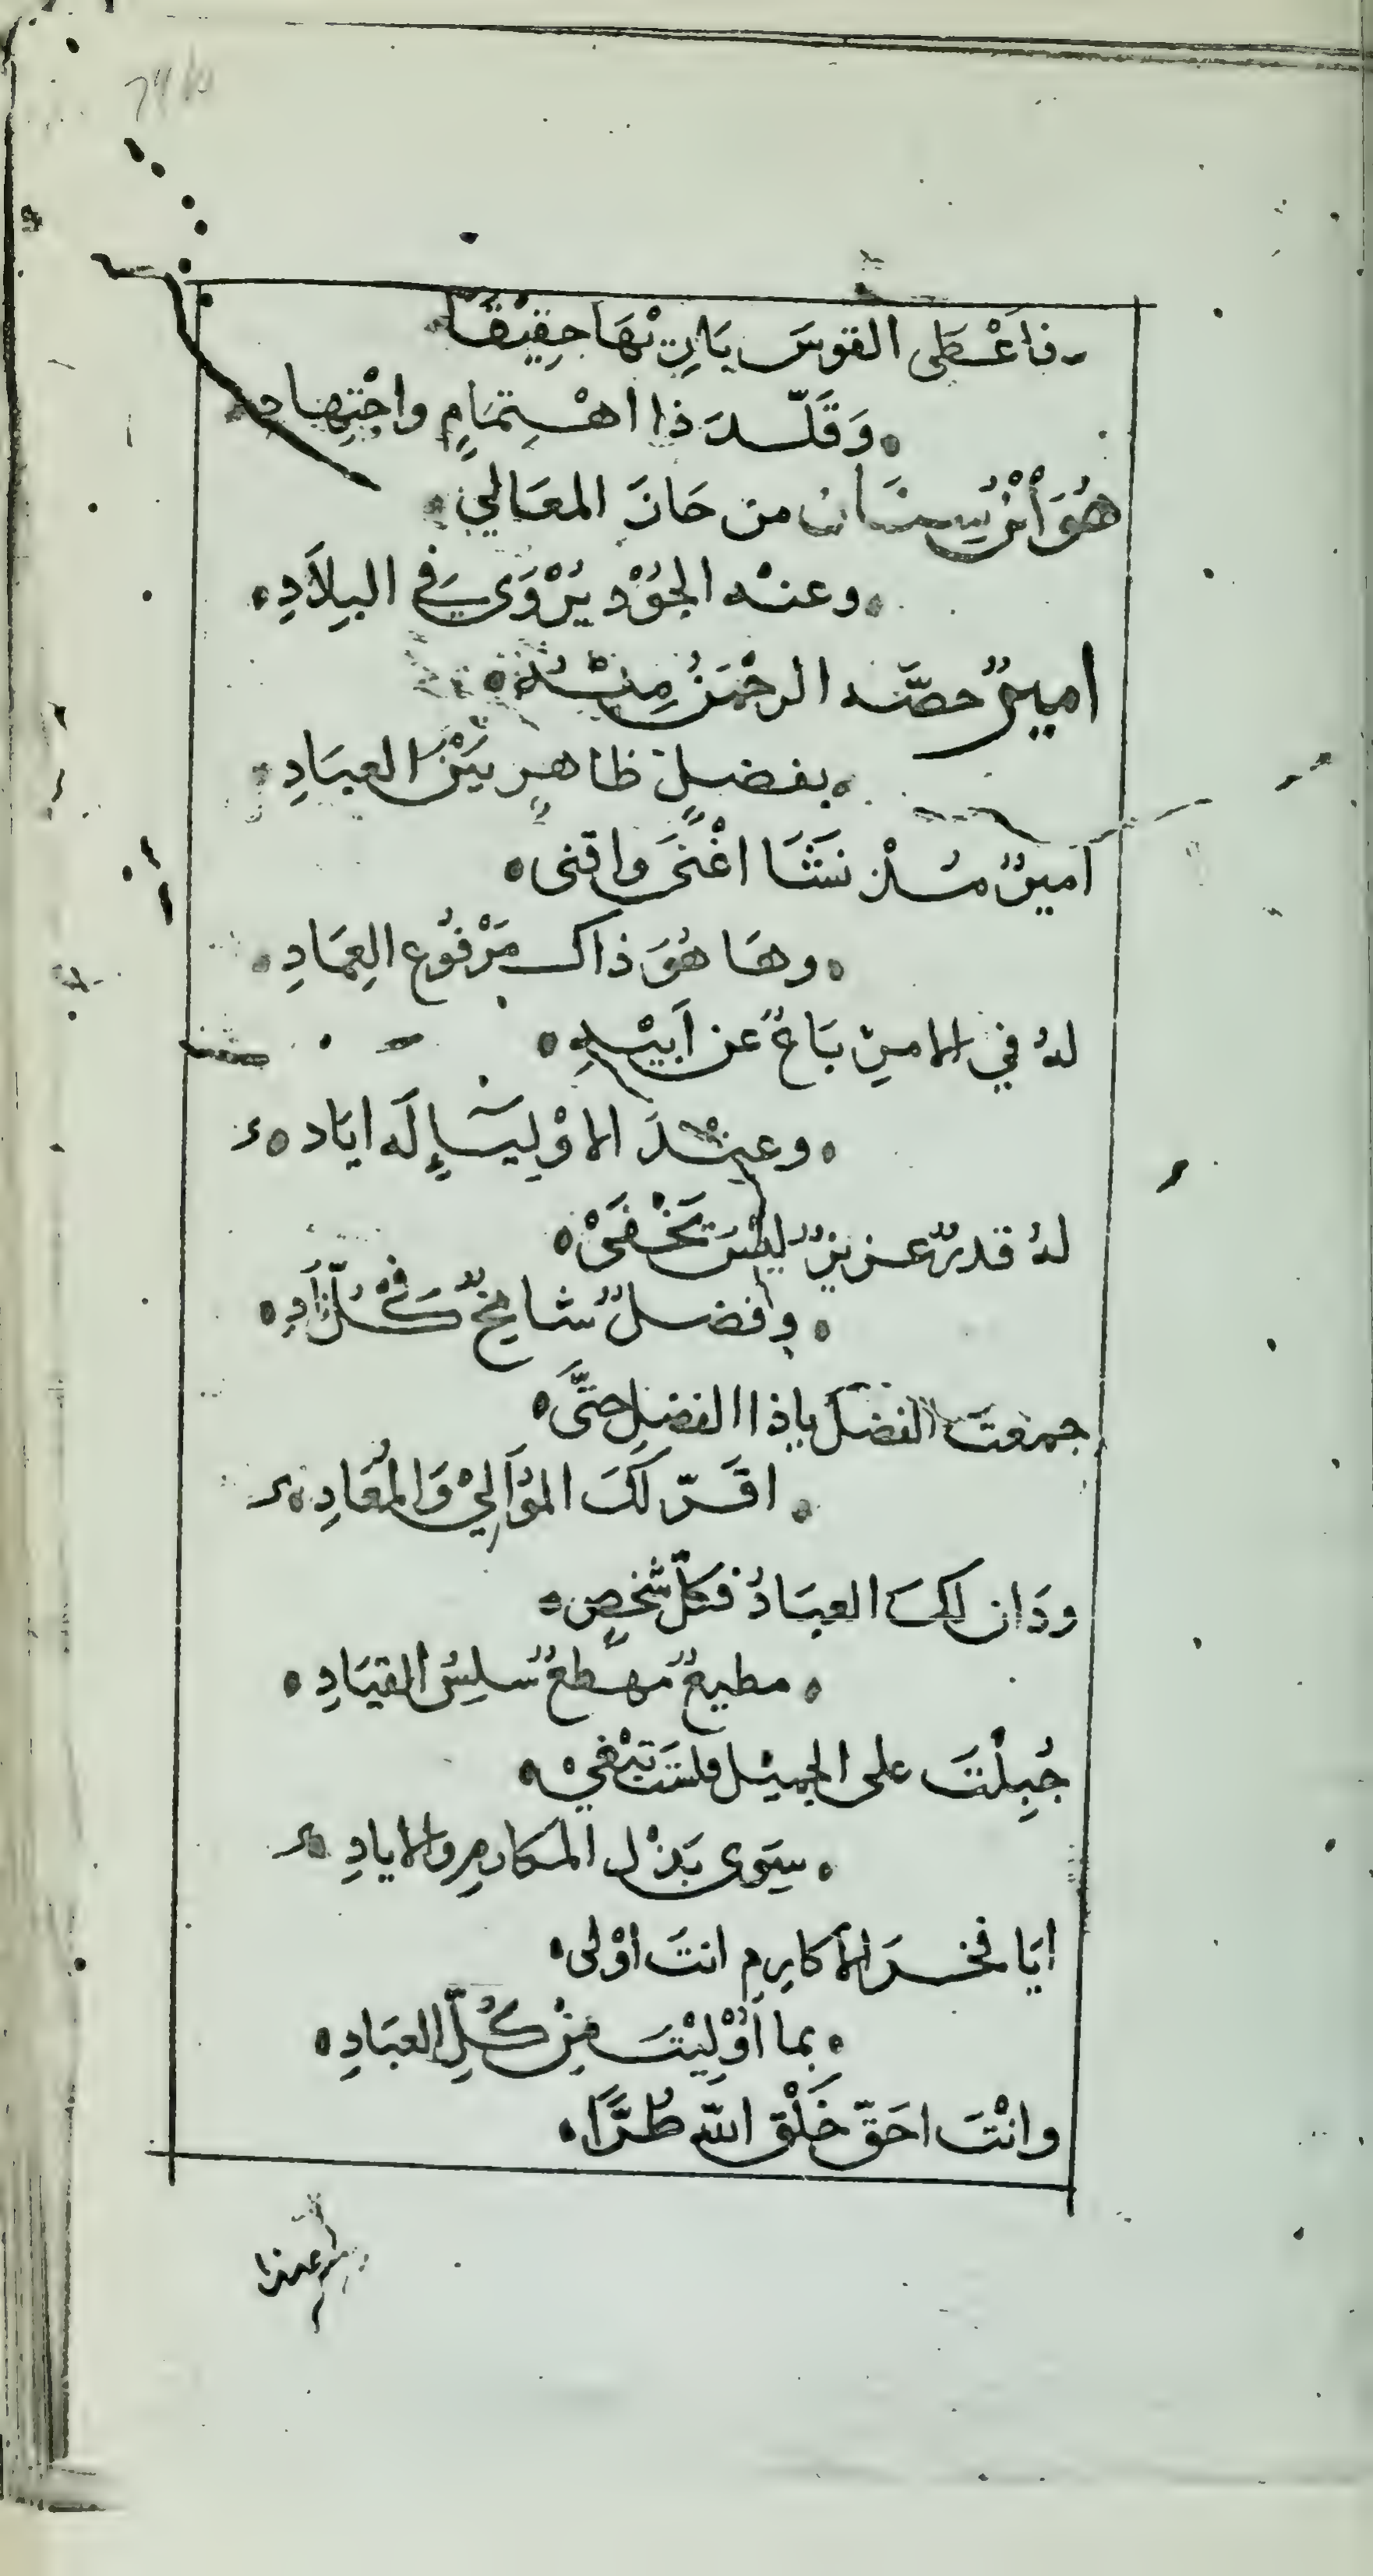 فاَعْطى القوسَ بَارِيْهَا حقِيْقًا
وَقَلّدَ ذا اهْتِمَامٍ واجْتِهادِ
هُوَ أبْنُ سِنَان من حَازَ المعَالي
وعنْه الجُوْد يُرْوَى في البِلاَدِ
اميرٌ خصّه الرحْمَنُ مِنْهُ
بفضلٍ ظاهرٍ بَيْنَ العبَادِ
اميرٌ مُذْ نَشَا اغْنَى واقنى
وهَا هُوَ ذاك مَرْفُوع العِمَادِ
لهُ في الامرِ بَاعٌ عن اَبيْهِ
وعِنْدَ الاوْلِيَآءِ لَه ايَاد
لهُ قدرٌ عزيزٌ ليْسَ يَخْفَىْ
وافضلٌ شامخٌ في كُلّ نَادِ
جمعتَ الفضلَ ياذا الفضلِ حتَّى
اقَرّ لَكَ المُوَاليْ وَالمُعَادِ
ودَان لكَ العبَادُ فكلّ شخصٍ
مطيعٌ مهطعٌ سلِسُ القيَادِ
جُبِلْتَ على الجميْل فلستَ تبْغيْ
سِوى بَذْل المكارمِ والايادِ
ايَا فخرَ الأكارِمِ انتَ اوْلى
بما أوْلِيْتَ مِنْ كُلِّ العبَادِ
وانْتَ احَقّ خَلْق اللّه طُرًّا